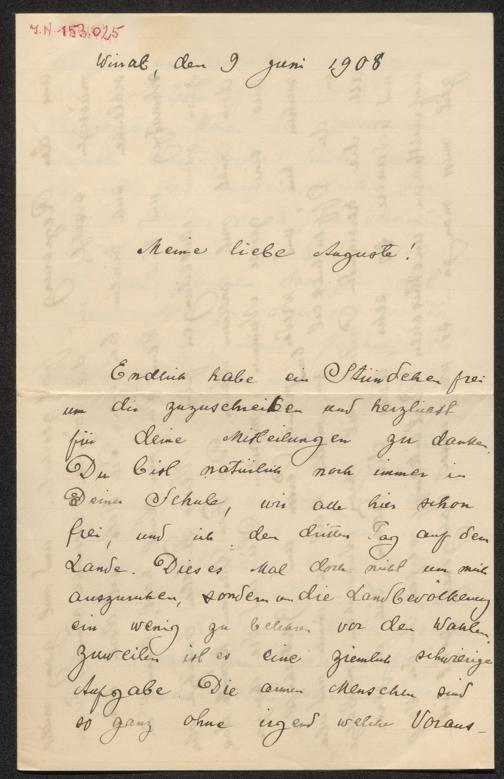 J.N. 153.025
den 9 Juni 1908
Meine liebe Auguste!
Endlich habe ein Stündchen frei
um dir zuzuschreiben und herzlichst
für deine Mitteilungen zu danken.
Du bist natürlich noch immer in
Deiner Schule, wir alle hier schon
frei, und ich den dritten Tag auf dem
Lande. Dieses Mal doch nicht um mich
auszuruhen, sondern um die Landbevölkerung
ein wenig zu belehren vor den Wahlen.
Zuweilen ist es eine ziemlich schwierige
Aufgabe. Die armen Menschen sind
so ganz ohne irgend welche Voraus-